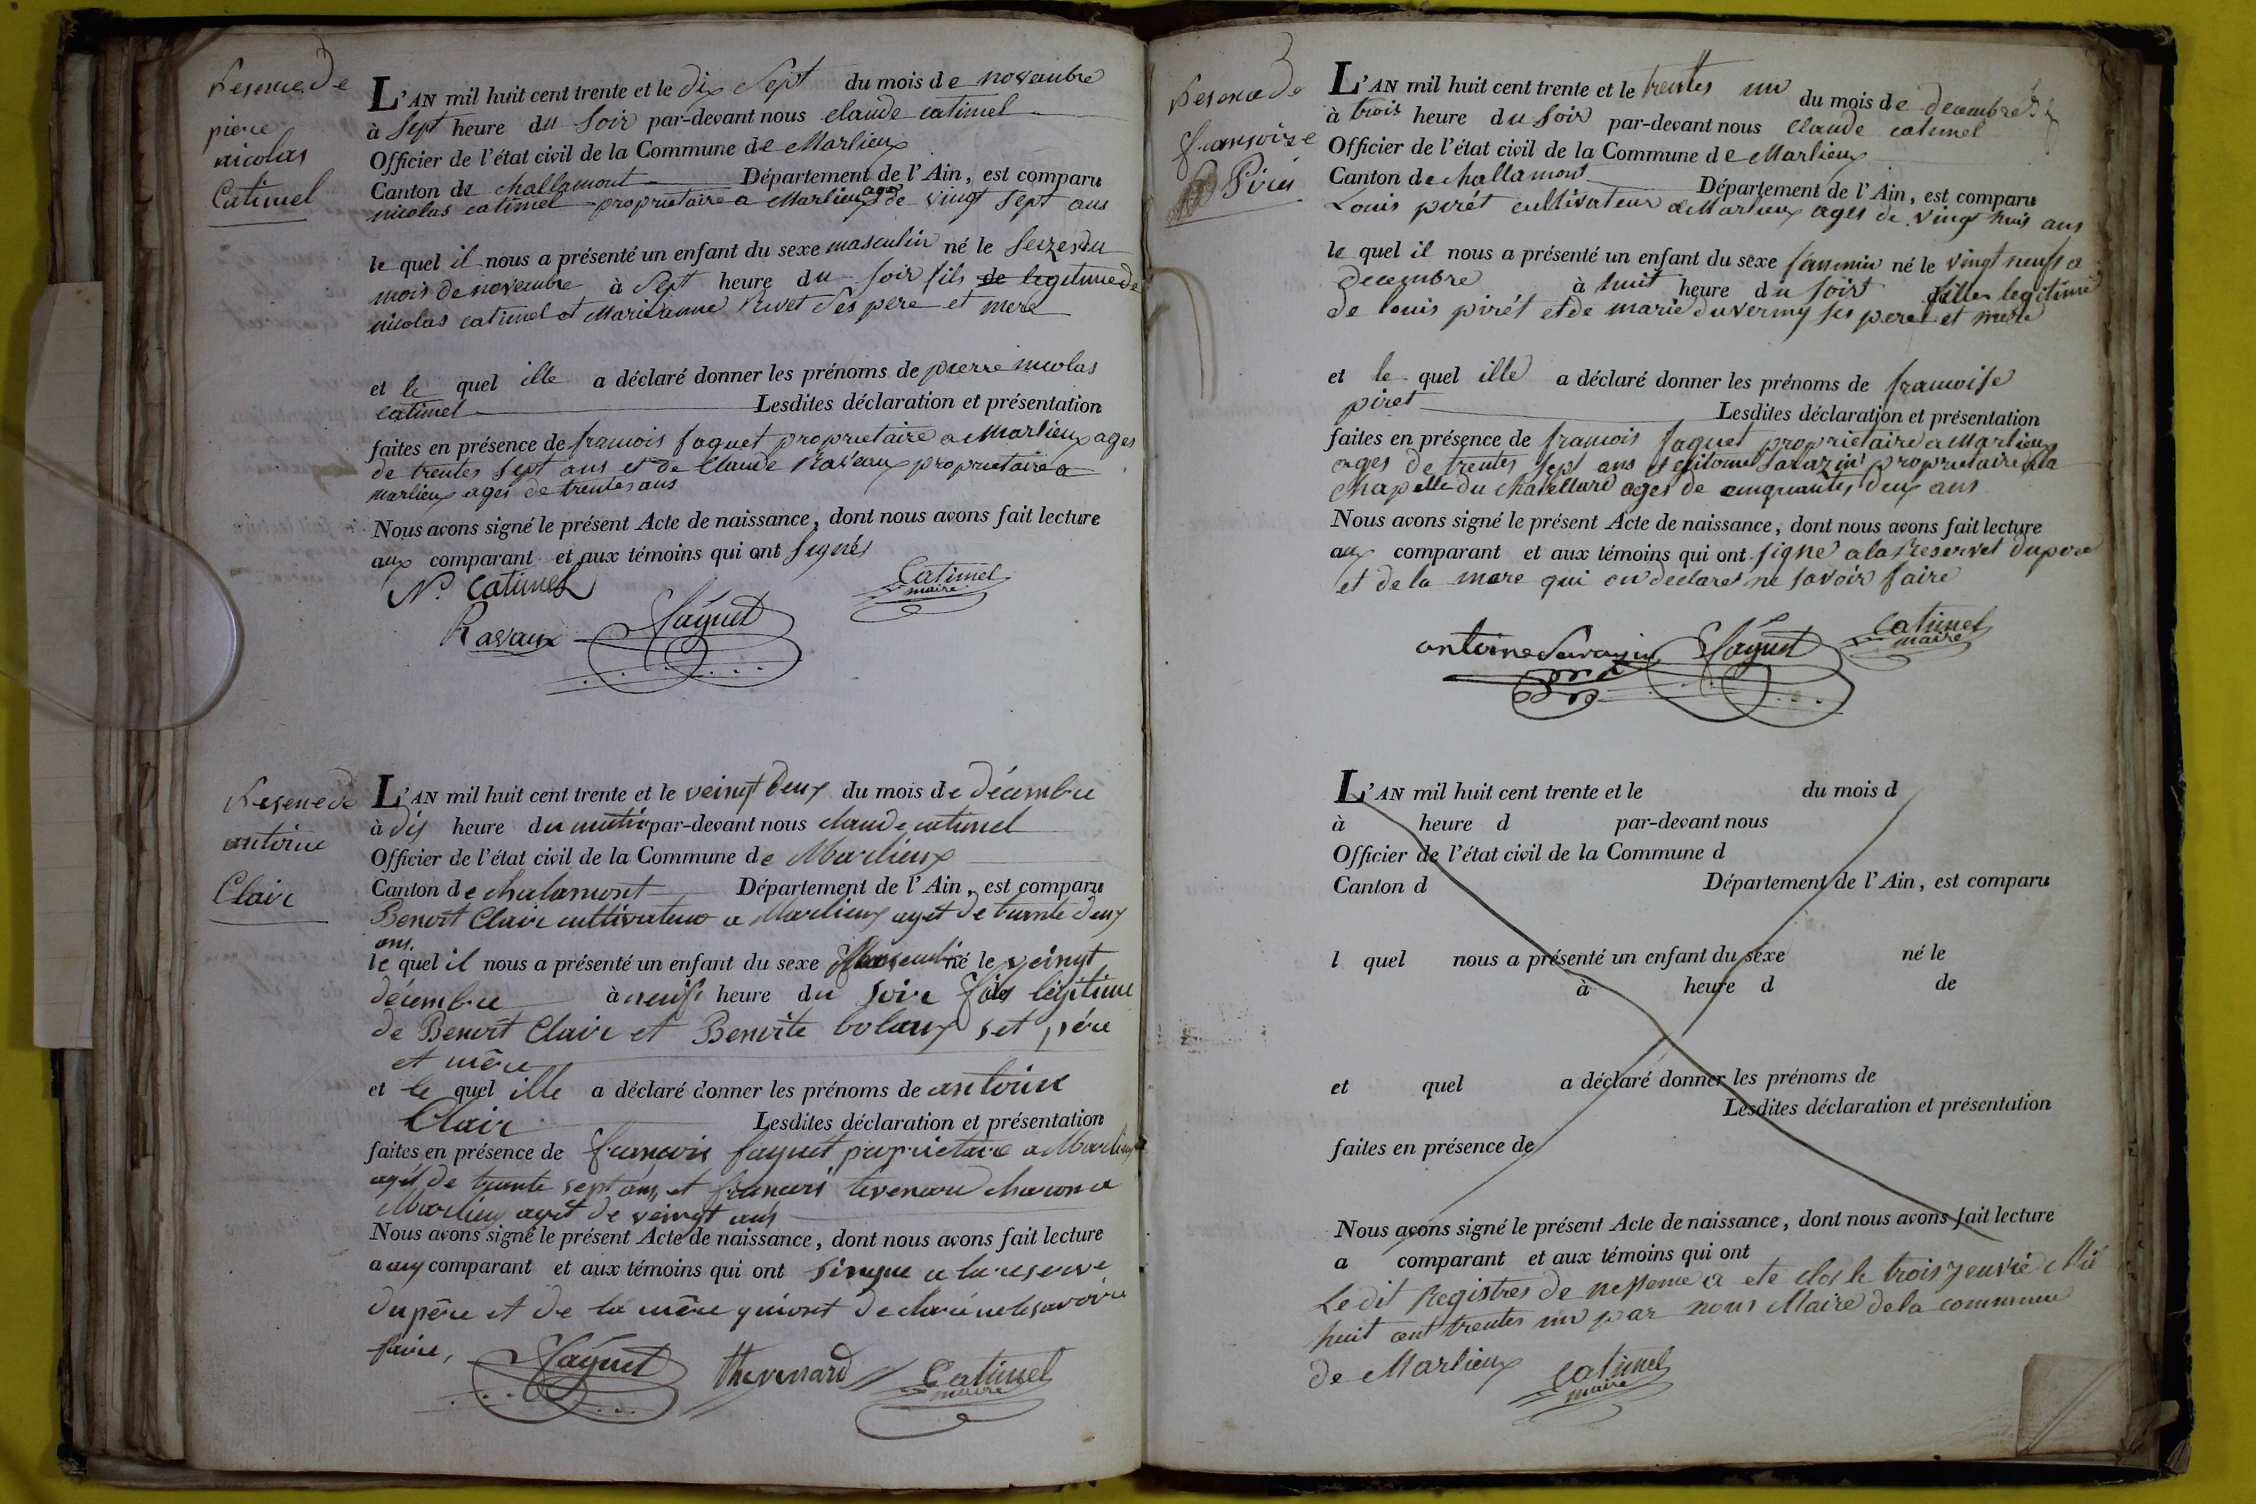 pierre
nicolas
Catimel
L'AN mil huit cent trente et le dix Sept du mois de novembre
à Sept heure du Soir par-devant nous claude catimel
Officier de l'état civil de la Commune de Marlieux
Canton de challamont Département de l'Ain, est comparu
nicolas catimel proprietaire a Marlieux ages de vingt Sept ans
le quel il nous a présenté un enfant du sexe masculin né le Seizes du
mois de novembre à Sept heure du Soir fils de legitime de
nicolas catimel et Marieanne Rivet Ses pere et mere
et le quel ille a déclaré donner les prénoms de pierre nicolas
catimel Lesdites déclaration et présentation
faites en présence de francois faquet proprietaire a Marlieux ages
de trentes Sept ans et de Claude Ravaux proprietaire a
marlieux ages de trentes ans
Nous avons signé le présent Acte de naissance, dont nous avons fait lecture
aux comparant et aux témoins qui ont Signés
N. Catimel
Catimel
maire
Ravaux Faquet
antoine
Clair
L'AN mil huit cent trente et le veingt deux du mois de décembre
à dis heure du matin par-devant nous claude catimel
Officier de l'état civil de la Commune de Marlieux
Canton de chalamont Département de l'Ain, est comparu
Benoit Clair cultivateur a Marlieux aget de trante deux
ans
le quel il nous a présenté un enfant du sexe Masculin né le veingt
décembre à neuf heure du Soire fils légitime
de Benoit Clair et Benoite bolaux set pére
et mére
et le quel ille a déclaré donner les prénoms de antoine
Clair Lesdites déclaration et présentation
faites en présence de francois faquet proprietaire a Marlieux
aget de trante sept ans et francois tevenard charon a
Marlieux aget de veingt ans
Nous avons signé le présent Acte de naissance, dont nous avons fait lecture
aux comparant et aux témoins qui ont Signe a la reserve
du père et de la mère qui ont declaré ne le savoire
faire,
Faquet thevenard Catimel
maire
francoise
Piret
L'AN mil huit cent trente et le trentes un du mois de decembre
à trois heure du Soir par-devant nous Claude catimel
Officier de l'état civil de la Commune de Marlieux
Canton de challamont Département de l'Ain, est comparu
Louis pirét cultivateur a Marlieux ages de vingt huis ans
le quel il nous a présenté un enfant du sexe feminin né le vingt neufs
decembre à huit heure du Soir filles legitime
de louis pirét et de marie duverny ses peres et mere
et le quel ille a déclaré donner les prénoms de francoise
piret Lesdites déclaration et présentation
faites en présence de francois faquet proprietaire a Marlieux
ages de trentes Sept ans et Sarazin proprietaire a la
chapelle du chatellard ages de cinquantes deux ans
Nous avons signé le présent Acte de naissance, dont nous avons fait lecture
aux comparant et aux témoins qui ont signe a la reservet du pere
et de la mere qui on declare ne savoir faire
antoine Sarazin Faquet Catimel
maire
L'AN mil huit cent trente et le du mois d
à heure d par-devant nous
Officier de l'état civil de la Commune d
Canton d Département de l'Ain, est comparu
l quel nous a présenté un enfant du sexe né le
à heure d de
et quel a déclaré donner les prénoms de
Lesdites déclaration et présentation
faites en présence de
Nous avons signé le présent Acte de naissance, dont nous avons fait lecture
a comparant et aux témoins qui ont
Le dit Registres de a ete clos le trois Mil
huit cent trentes un par nous Maire de la commune
de Marlieux Catimel
maire